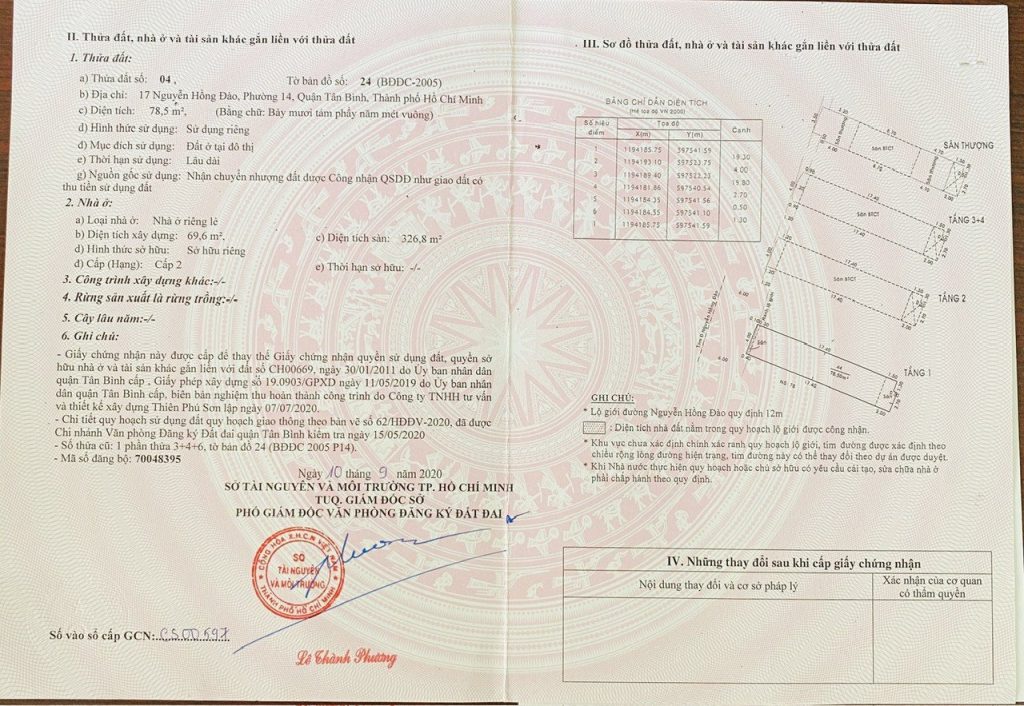 II. Thửa đất, nhà ở và tài sản khác gắn liền với thửa đất
1. Thửa đất:
a) Thửa đất số: 04, Tờ bản đồ số: 24 (BĐĐC-2005)
b) Địa chỉ: 17 Nguyễn Hồng Đào, Phường 14, Quận Tân Bình, Thành phố Hồ Chí Minh
c) Diện tích: 78,5 m², (Bằng chữ: Bảy mươi tám phẩy năm mét vuông)
d) Hình thức sử dụng: Sử dụng riêng
đ) Mục đích sử dụng: Đất ở tại đô thị
e) Thời hạn sử dụng: Lâu dài
g) Nguồn gốc sử dụng: Nhận chuyển nhượng đất được Công nhận QSDĐ như giao đất có
thu tiền sử dụng đất
2. Nhà ở:
a) Loại nhà ở: Nhà ở riêng lẻ
b) Diện tích xây dựng: 69,6 m², c) Diện tích sàn: 326,8 m²
d) Hình thức sở hữu: Sở hữu riêng
đ) Cấp (Hạng): Cấp 2 e) Thời hạn sở hữu: -/-
3. Công trình xây dựng khác:-/-
4. Rừng sản xuất là rừng trồng:-/-
5. Cây lâu năm:-/-
6. Ghi chú:
- Giấy chứng nhận này được cấp để thay thế Giấy chứng nhận quyền sử dụng đất, quyền sở
hữu nhà ở và tài sản khác gắn liền với đất số CH00669, ngày 30/01/2011 do Ủy ban nhân dân
quận Tân Bình cấp , Giấy phép xây dựng số 19.0903/GPXD ngày 11/05/2019 do Ủy ban nhân
dân quận Tân Bình cấp, biên bản nghiệm thu hoàn thành công trình do Công ty TNHH tư vấn
và thiết kế xây dựng Thiên Phú Sơn lập ngày 07/07/2020.
- Chi tiết quy hoạch sử dụng đất quy hoạch giao thông theo bản vẽ số 62/HĐĐV-2020, đã được
Chi nhánh Văn phòng Đăng ký Đất đai quận Tân Bình kiểm tra ngày 15/05/2020
- Số thửa cũ: 1 phần thửa 3+4+6, tờ bản đồ 24 (BĐĐC 2005 P14).
- Mã số đăng bộ: 70048395
Ngày 10 tháng 9 năm 2020
SỞ TÀI NGUYÊN VÀ MÔI TRƯỜNG TP. HỒ CHÍ MINH
TUQ. GIÁM ĐỐC SỞ
PHÓ GIÁM ĐỐC VĂN PHÒNG ĐĂNG KÝ ĐẤT ĐAI
CỘNG HÒA X.H.C.N VIỆT NAM
SỞ
TÀI NGUYÊN
VÀ MÔI TRƯỜNG
THÀNH PHỐ HỒ CHÍ MINH
Số vào sổ cấp GCN: CS00597
Lê Thành Phương
III. Sơ đồ thửa đất, nhà ở và tài sản khác gắn liền với thửa đất
BẢNG CHỈ DẪN DIỆN TÍCH
(Hệ tọa độ VN 2000)
Số hiệu điểm Tọa độ Cạnh
X(m) Y(m)
1 1194185.75 597541.59
19.30
2 1194193.10 597523.75
4.00
3 1194189.40 597522.23
19.80
4 1194181.86 597540.54
2.70
5 1194184.35 597541.56
0.50
6 1194184.55 597541.10
1.30
1 1194185.75 597541.59
SÂN THƯỢNG
Sân thượng
Sàn BTCT
Sân thượng
TẦNG 3+4
Sàn BTCT
17.40
TẦNG 2
Sàn BTCT
17.40
TẦNG 1
Sân
17.40
GHI CHÚ:
* Lộ giới đường Nguyễn Hồng Đào quy định 12m
: Diện tích đất nằm trong quy hoạch lộ giới được công nhận.
* Khu vực chưa xác định chính xác ranh quy hoạch lộ giới, tim đường được xác định theo
chiều rộng lòng đường hiện trạng, tim đường này có thể thay đổi theo dự án được duyệt.
* Khi Nhà nước thực hiện quy hoạch hoặc chủ sở hữu có yêu cầu cải tạo, sửa chữa nhà ở
phải chấp hành theo quy định.
IV. Những thay đổi sau khi cấp giấy chứng nhận
Nội dung thay đổi và cơ sở pháp lý
Xác nhận của cơ quan
có thẩm quyền